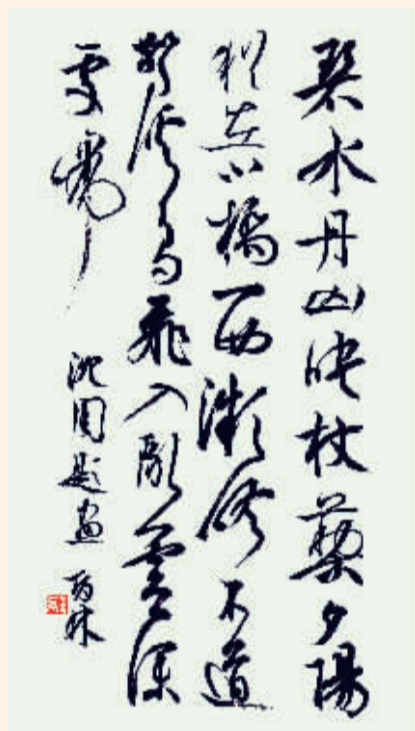 碧水丹山映杖藜夕陽
猶在小橋西微吟不道
驚溪鳥飛入亂雲深
處啼
沈周題畫